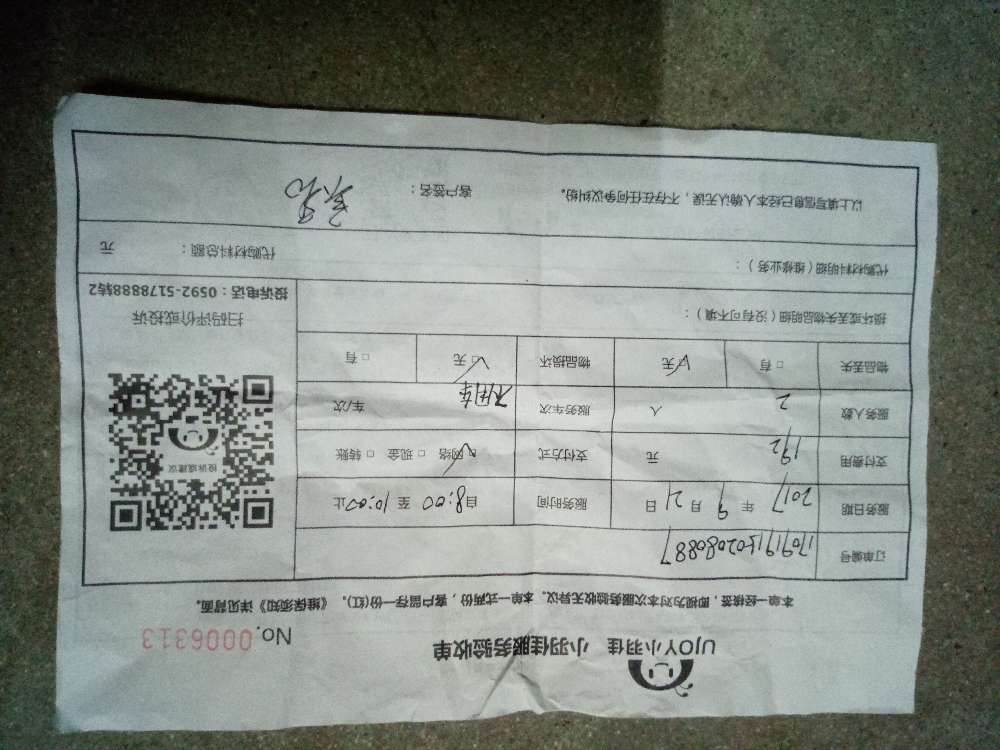 UJOY小羽佳 小羽佳服务验收单
No. 0006313
本单一经核签，即视为对本次服务验收无异议。本单一式两份，客户留存一份(红)。《维保须知》详见背面。
订单编号 170919150208088​7
服务日期 2017 年 9 月 21 日 服务时间 自8:00 至 10:00止
支付费用 192 元 支付方式 网络 □ 现金 □ 转账
服务人数 2 人 服务车次 不用车 车/次
物品丢失 □ 有 □ 无 物品损坏 □ 无 □ 有
投诉或建议
扫码评价或投诉
投诉电话：0592-5178888转2
损坏或丢失物品明细（没有可不填）：
代购材料明细（维修业务）： 代购材料总额： 元
以上填写信息已经本人确认无误，不存在任何争议纠纷。 客户签名：